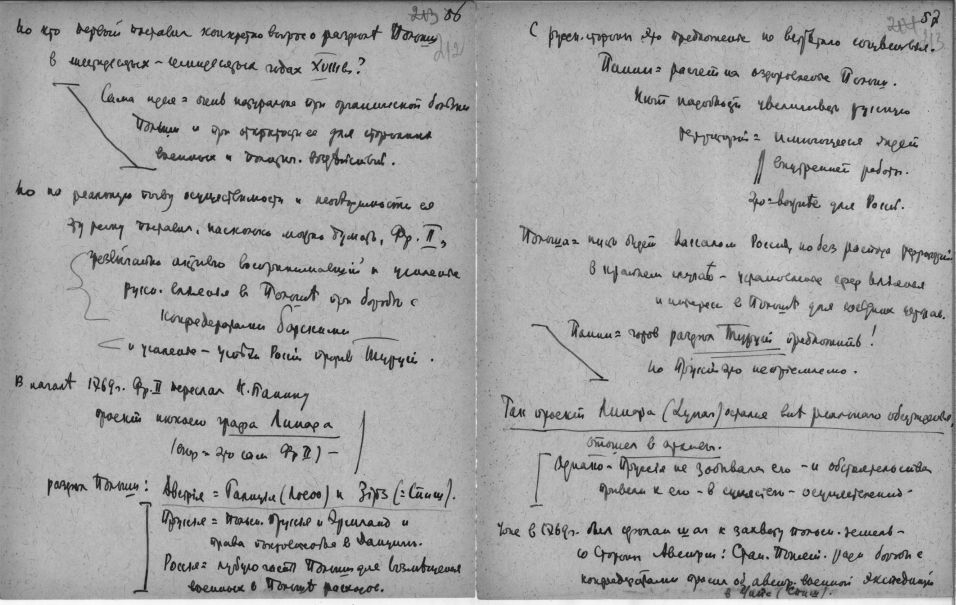 213 86
212
Но кто первый поставил конкретно вопрос о разделѣ Польши
в шестидесятых – семидесятых годах XVIII в.?
Сама идея = очень натуральна при органической болѣзни
Польши и при открытости ее для сторонних
военных и воздѣйствий.
Но на реальную почву осуществимости и необходимости ее
эту тему поставил, насколько можно думать, Фр. II,
чрезвычайно активно воспринимавший и усиление
русск. влияния в Польшѣ при борьбѣ с
конфедератами барскими
и усиление – успѣхи Россіи против Турции.
В началѣ 1769 г. Фр. II переслал Н. Панину
проект некоего графа Линара
= это сам Фр II) –
раздѣл Польши: Австрія = Галиция (Львов) и Зипс (= Спиш).
Пруссия = польск. Пруссия и Эрмланд и
права покровительства в Данциге.
Россия = часть Польши для возмѣщения
военных в Польшѣ расходов.
87
213
С русск. стороны это предложение не встрѣтило сочувствия.
Панин = расчет на оздоровление Польши.
Нет надобности увеличивать русскую
территорию = имеющуюся
внутренней работы.
Это = для Россіи.
Польша = пусть будет вассалом Россіи, но без раздѣла территорий
в крайнем случаѣ – установление сфер влияния
и интереса в Польшѣ для соседних держав.
Панин = готов раздѣл Турции предложить!
Но Пруссіи это неприемлемо.
Так проект Линара (Lynar) остался внѣ реального обсуждения,
отошел в архивы.
Однако – Пруссия не забывала его – и обстоятельства
привели к его – в сущности – осуществлению.
Уже в 1769 г. был сделан шаг к захвату польск. земель –
со стороны Австрии: Стан. Понят. ради борьбы с
конфедератами просил об австр. военной экспедиции
в (Спиш).